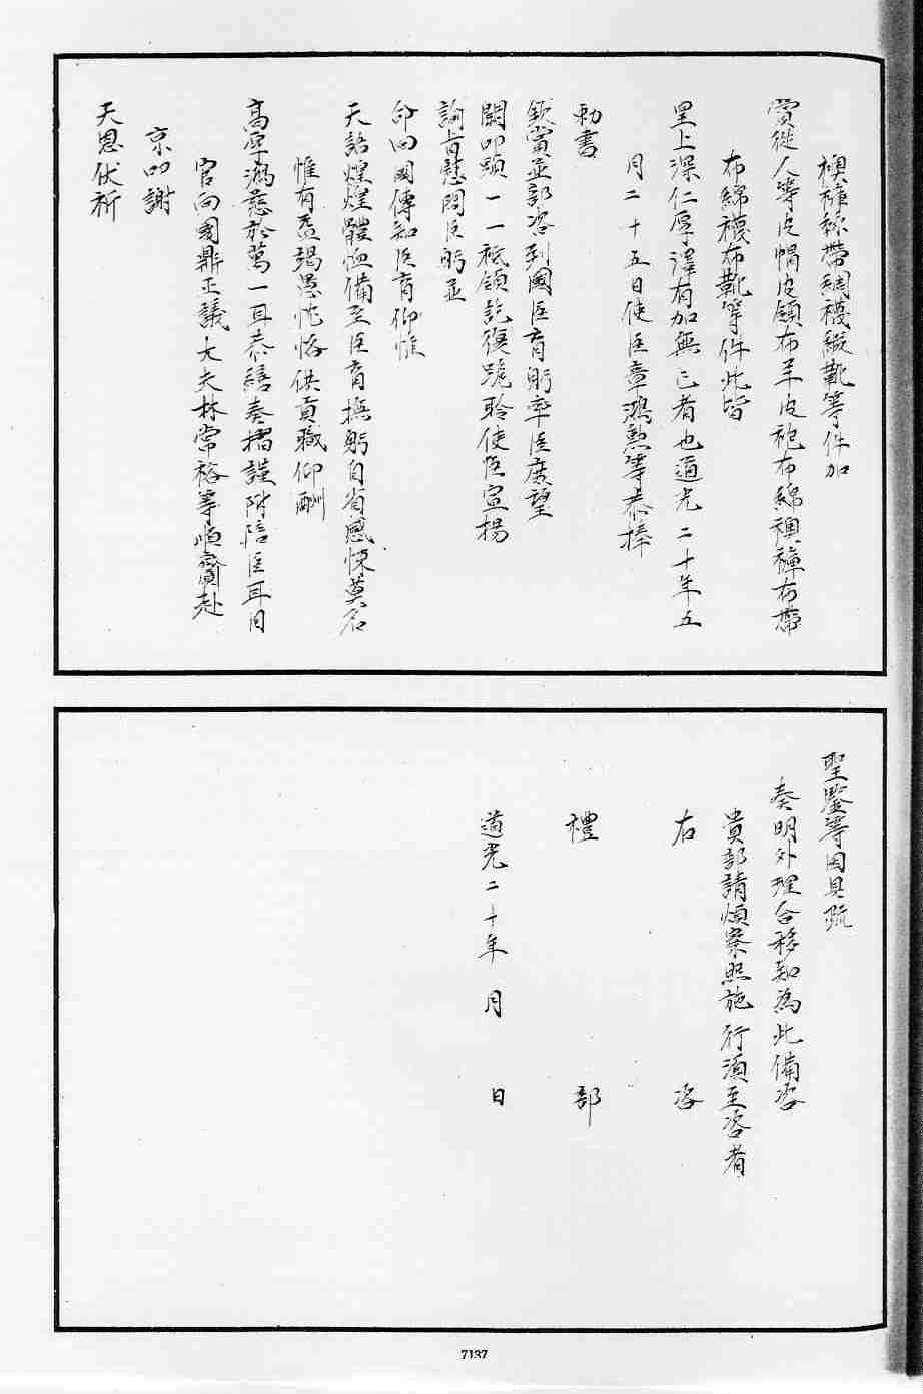 襖褲絲帶綢襪緞靴等件加
賞從人等皮帽皮領布羊皮袍布綿襖褲布帶
布綿襪布靴等件此皆
皇上深仁厚澤有加無已者也道光二十年五
月二十五日使臣章鴻勲等恭捧
勅書
欽賞並部咨到國臣育躬率臣庶望
闕叩頭一一祗領訖復跪聆使臣宣揚
諭旨慰問臣躬並
命回國傳知臣育仰惟
天語煌煌體恤備至臣育撫躬自省感悚莫名
惟有益竭愚忱恪供貢職仰酬
高厚鴻慈於萬一耳恭繕奏摺謹附陪臣耳目
官向國鼎正議大夫林常裕等順齎赴
京叩謝
天恩伏祈
聖鑒等因具疏
奏明外理合移知為此備咨
貴部請煩察照施行須至咨者
右 咨
禮 部
道光二十年 月 日
7137